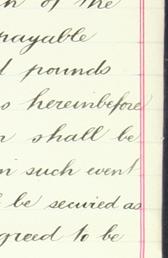 of the
payable
pounds
hereinbefore
shall be
in such event
be secured as
agreed to be